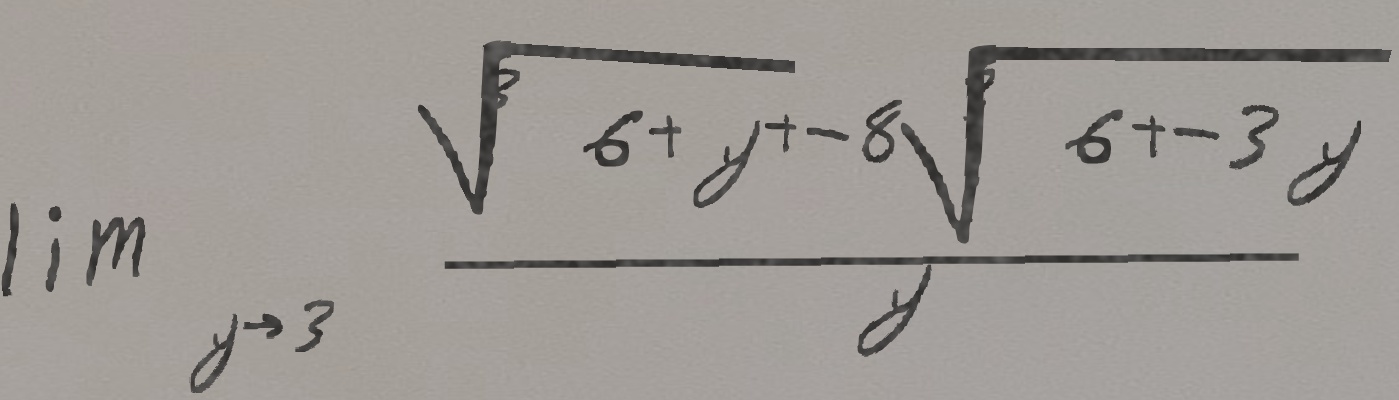 \lim_{y \to 3} \frac{\sqrt[3]{6+y}+-8\sqrt[3]{6+-3y}}{y}